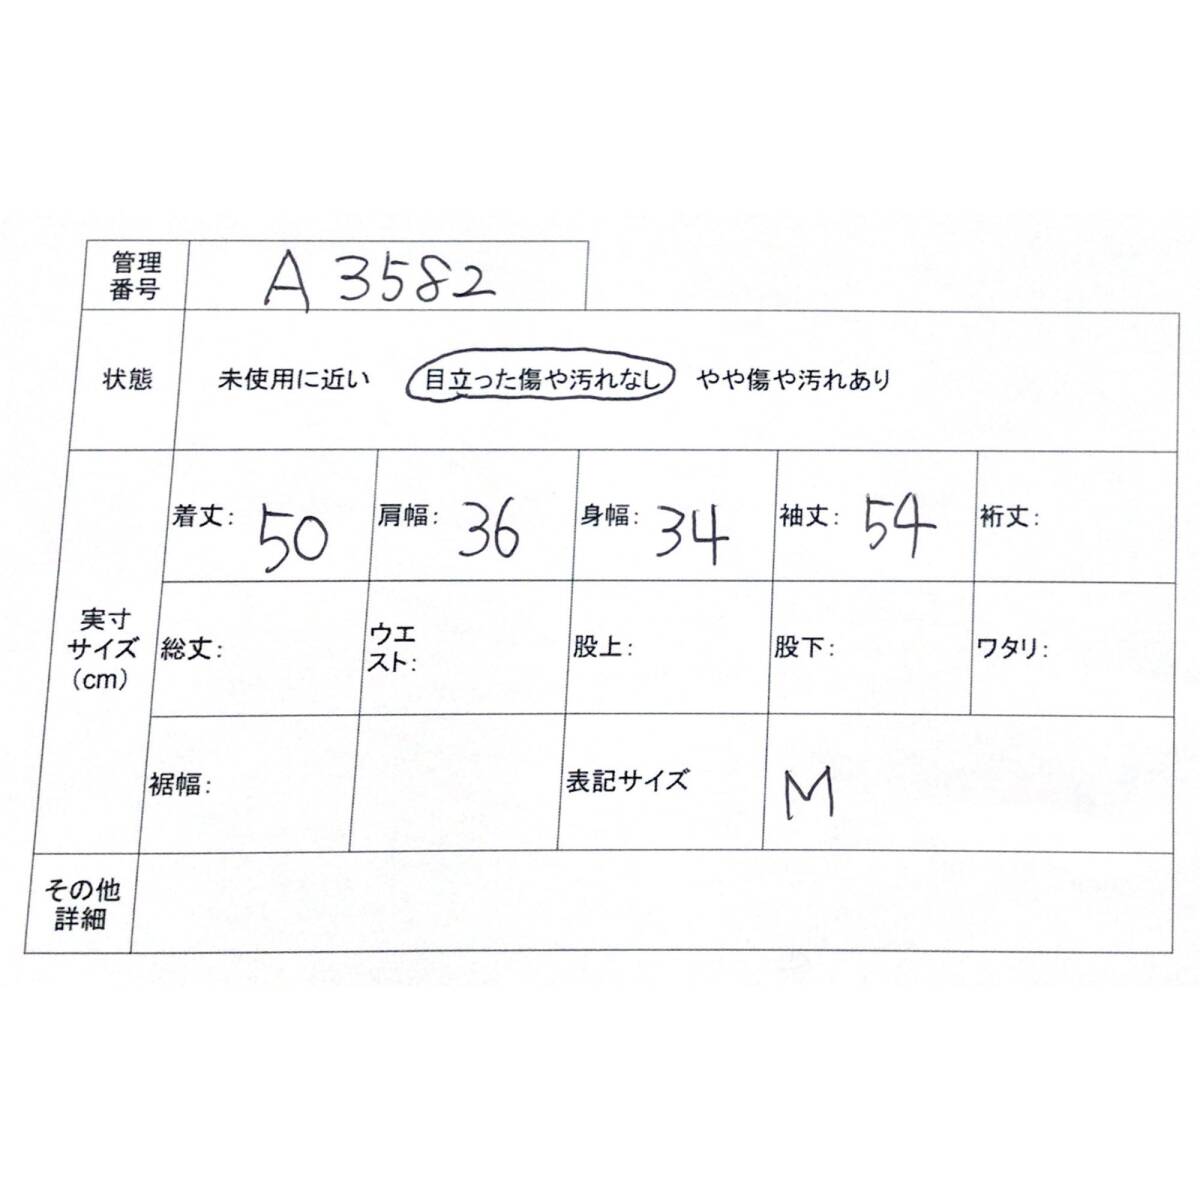 管理
番号
A3582
状態
未使用に近い 目立った傷や汚れなし やや傷や汚れあり
実寸
サイズ
(cm)
着丈: 50
肩幅: 36
身幅: 34
袖丈: 54
裄丈:
総丈:
ウエ
スト:
股上:
股下:
ワタリ:
裾幅:
表記サイズ
M
その他
詳細